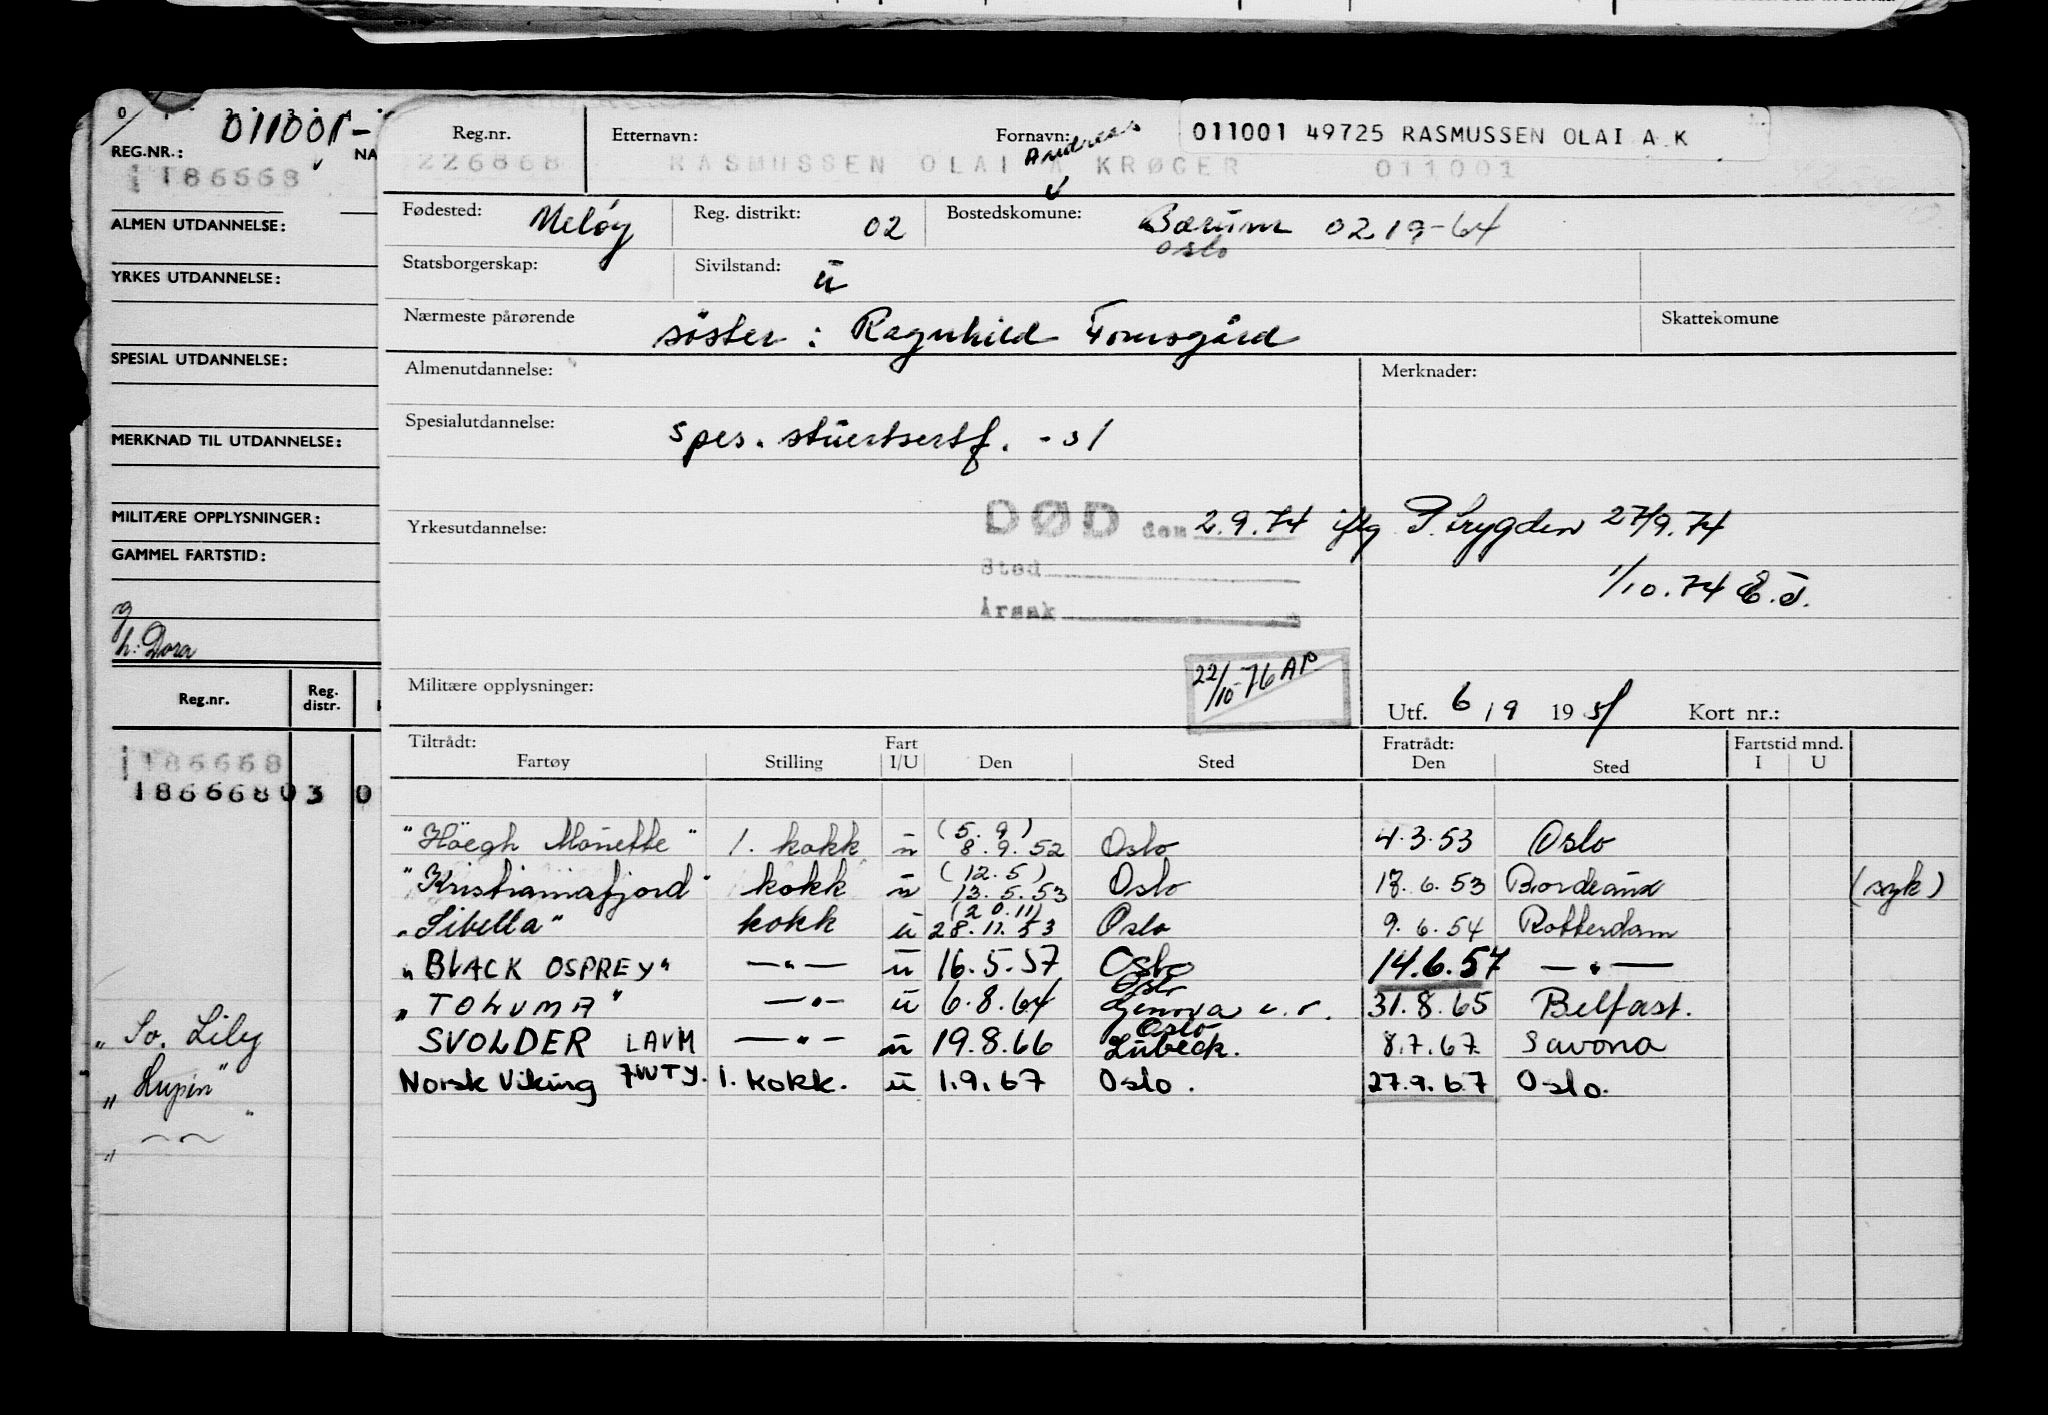 011001-
REG.NR.: NA
186668
ALMEN UTDANNELSE:
YRKES UTDANNELSE:
SPESIAL UTDANNELSE:
MERKNAD TIL UTDANNELSE:
MILITÆRE OPPLYSNINGER:
GAMMEL FARTSTID:
h: Dora
Reg.nr. Reg. distr.
186668
18666803 0
"So. Lily
"Lupin"
Reg.nr. Etternavn: Fornavn: Andreas 011001 49725 RASMUSSEN OLAI A K
226868 RASMUSSEN OLAI A KRØGER 011001
Fødested: Meløy Reg. distrikt: 02 Bostedskomune: Bærum 0219-64
Oslo
Statsborgerskap: Sivilstand: ū
Nærmeste pårørende søster: Ragnhild Fonsgård Skattekomune
Almenutdannelse: Merknader:
Spesialutdannelse: spes. stuertsertf. - s1
Yrkesutdannelse: DØD den 2.9.74 iflg P.trygden 27/9.74
Sted 1/10.74 E.J.
Årsak
Militære opplysninger: 22/10-76 AP
Utf. 6/9 195 Kort nr.:
Tiltrådt: Fart Fratrådt: Fartstid mnd.
Fartøy Stilling I/U Den Sted Den Sted I U
"Höegh Monette" 1. kokk ū (5.9) 8.9.52 Oslo 4.3.53 Oslo
"Kristianiafjord" kokk ū (12.5) 13.5.53 Oslo 18.6.53 Bordeaux (syk)
"Sibella" kokk ū (20.11) 28.11.53 Oslo 9.6.54 Rotterdam
"BLACK OSPREY" —"— ū 16.5.57 Oslo 14.6.57 —"—
"TOLUMA" —"— ū 6.8.64 Oslo Genova e.o. 31.8.65 Belfast.
SVOLDER LAVM —"— ū 19.8.66 Oslo Lübeck. 8.7.67 Savona
Norsk Viking JWTY. 1. kokk. ū 1.9.67 Oslo. 27.9.67 Oslo.